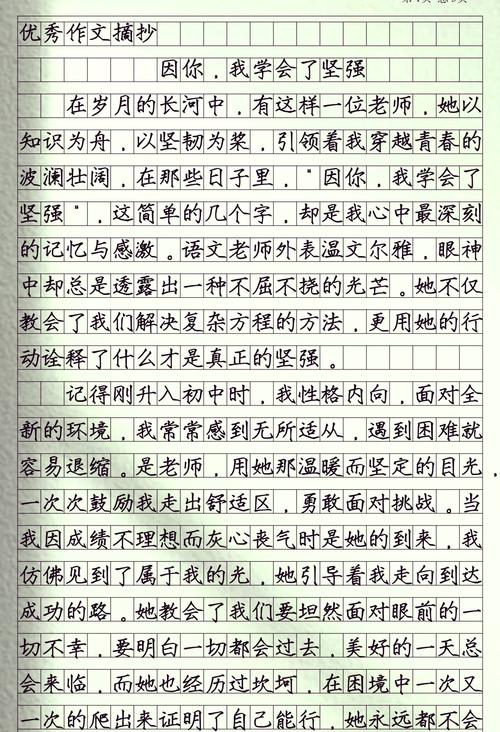 优秀作文摘抄
因你，我学会了坚强
在岁月的长河中，有这样一位老师，她以
知识为舟，以坚韧为桨，引领着我穿越青春的
波澜壮阔，在那些日子里，"因你，我学会了
坚强"，这简单的几个字，却是我心中最深刻
的记忆与感激。语文老师外表温文尔雅，眼神
中却总是透露出一种不屈不挠的光芒。她不仅
教会了我们解决复杂方程的方法，更用她的行
动诠释了什么才是真正的坚强。
记得刚升入初中时，我性格内向，面对全
新的环境，我常常感到无所适从，遇到困难就
容易退缩。是老师，用她那温暖而坚定的目光，
一次次鼓励我走出舒适区，勇敢面对挑战。当
我因成绩不理想而灰心丧气时是她的到来，我
仿佛见到了属于我的光，她引导着我走向到达
成功的路。她教会了我们要坦然面对眼前的一
切不幸，要明白一切都会过去，美好的一天总
会来临，而她也经历过坎坷，在困境中一次又
一次的爬出来证明了自己能行，她永远都不会